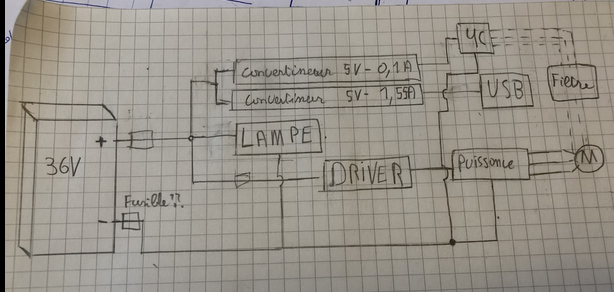 µC
Convertisseur 5V - 0,1A
Convertisseur 5V - 1,55A
USB
Filtre
+
LAMPE
36V
DRIVER
Puissance
M
Fusible??
-